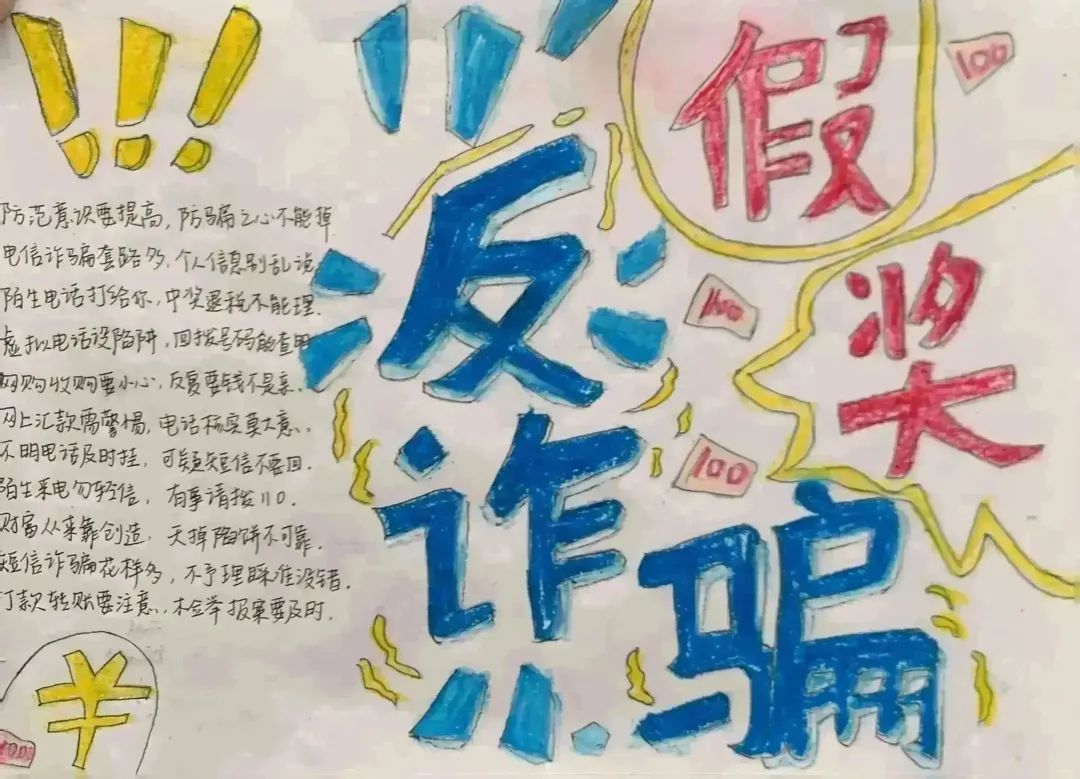 !!!
防范意识要提高，防骗之心不能掉
电信诈骗套路多，个人信息别乱说
陌生电话打给你，中奖退税不能理.
虚拟电话设陷阱，回拨号码能查明
网购收购要小心，反复要钱不是亲.
网上汇款需警惕，电话核实莫大意.
不明电话及时挂，可疑短信不要回.
陌生来电勿轻信，有事请拨110.
财富从来靠创造，天掉陷饼不可靠.
短信诈骗花样多，不予理睬准没错.
打款转账要注意，检举报案要及时.
¥
100
反
诈
骗
!!
假
奖
100
100
100